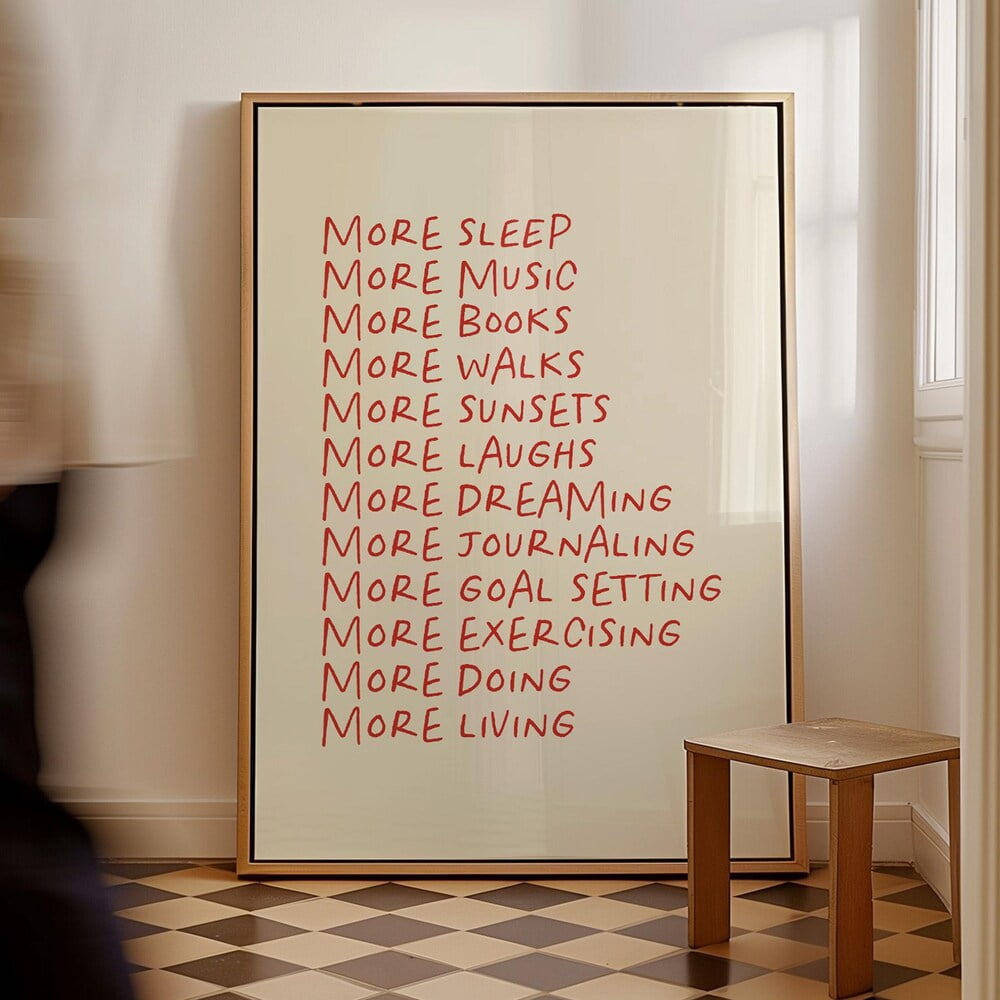 MORE SLEEP
MORE MUSIC
MORE BOOKS
MORE WALKS
MORE SUNSETS
MORE LAUGHS
MORE DREAMING
MORE JOURNALING
MORE GOAL SETTING
MORE EXERCISING
MORE DOING
MORE LIVING